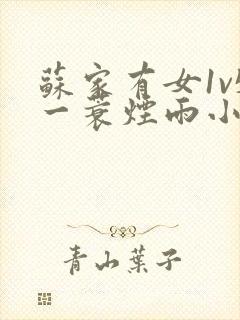 蘇家有女1v
一蓑煙雨小
青山葉子